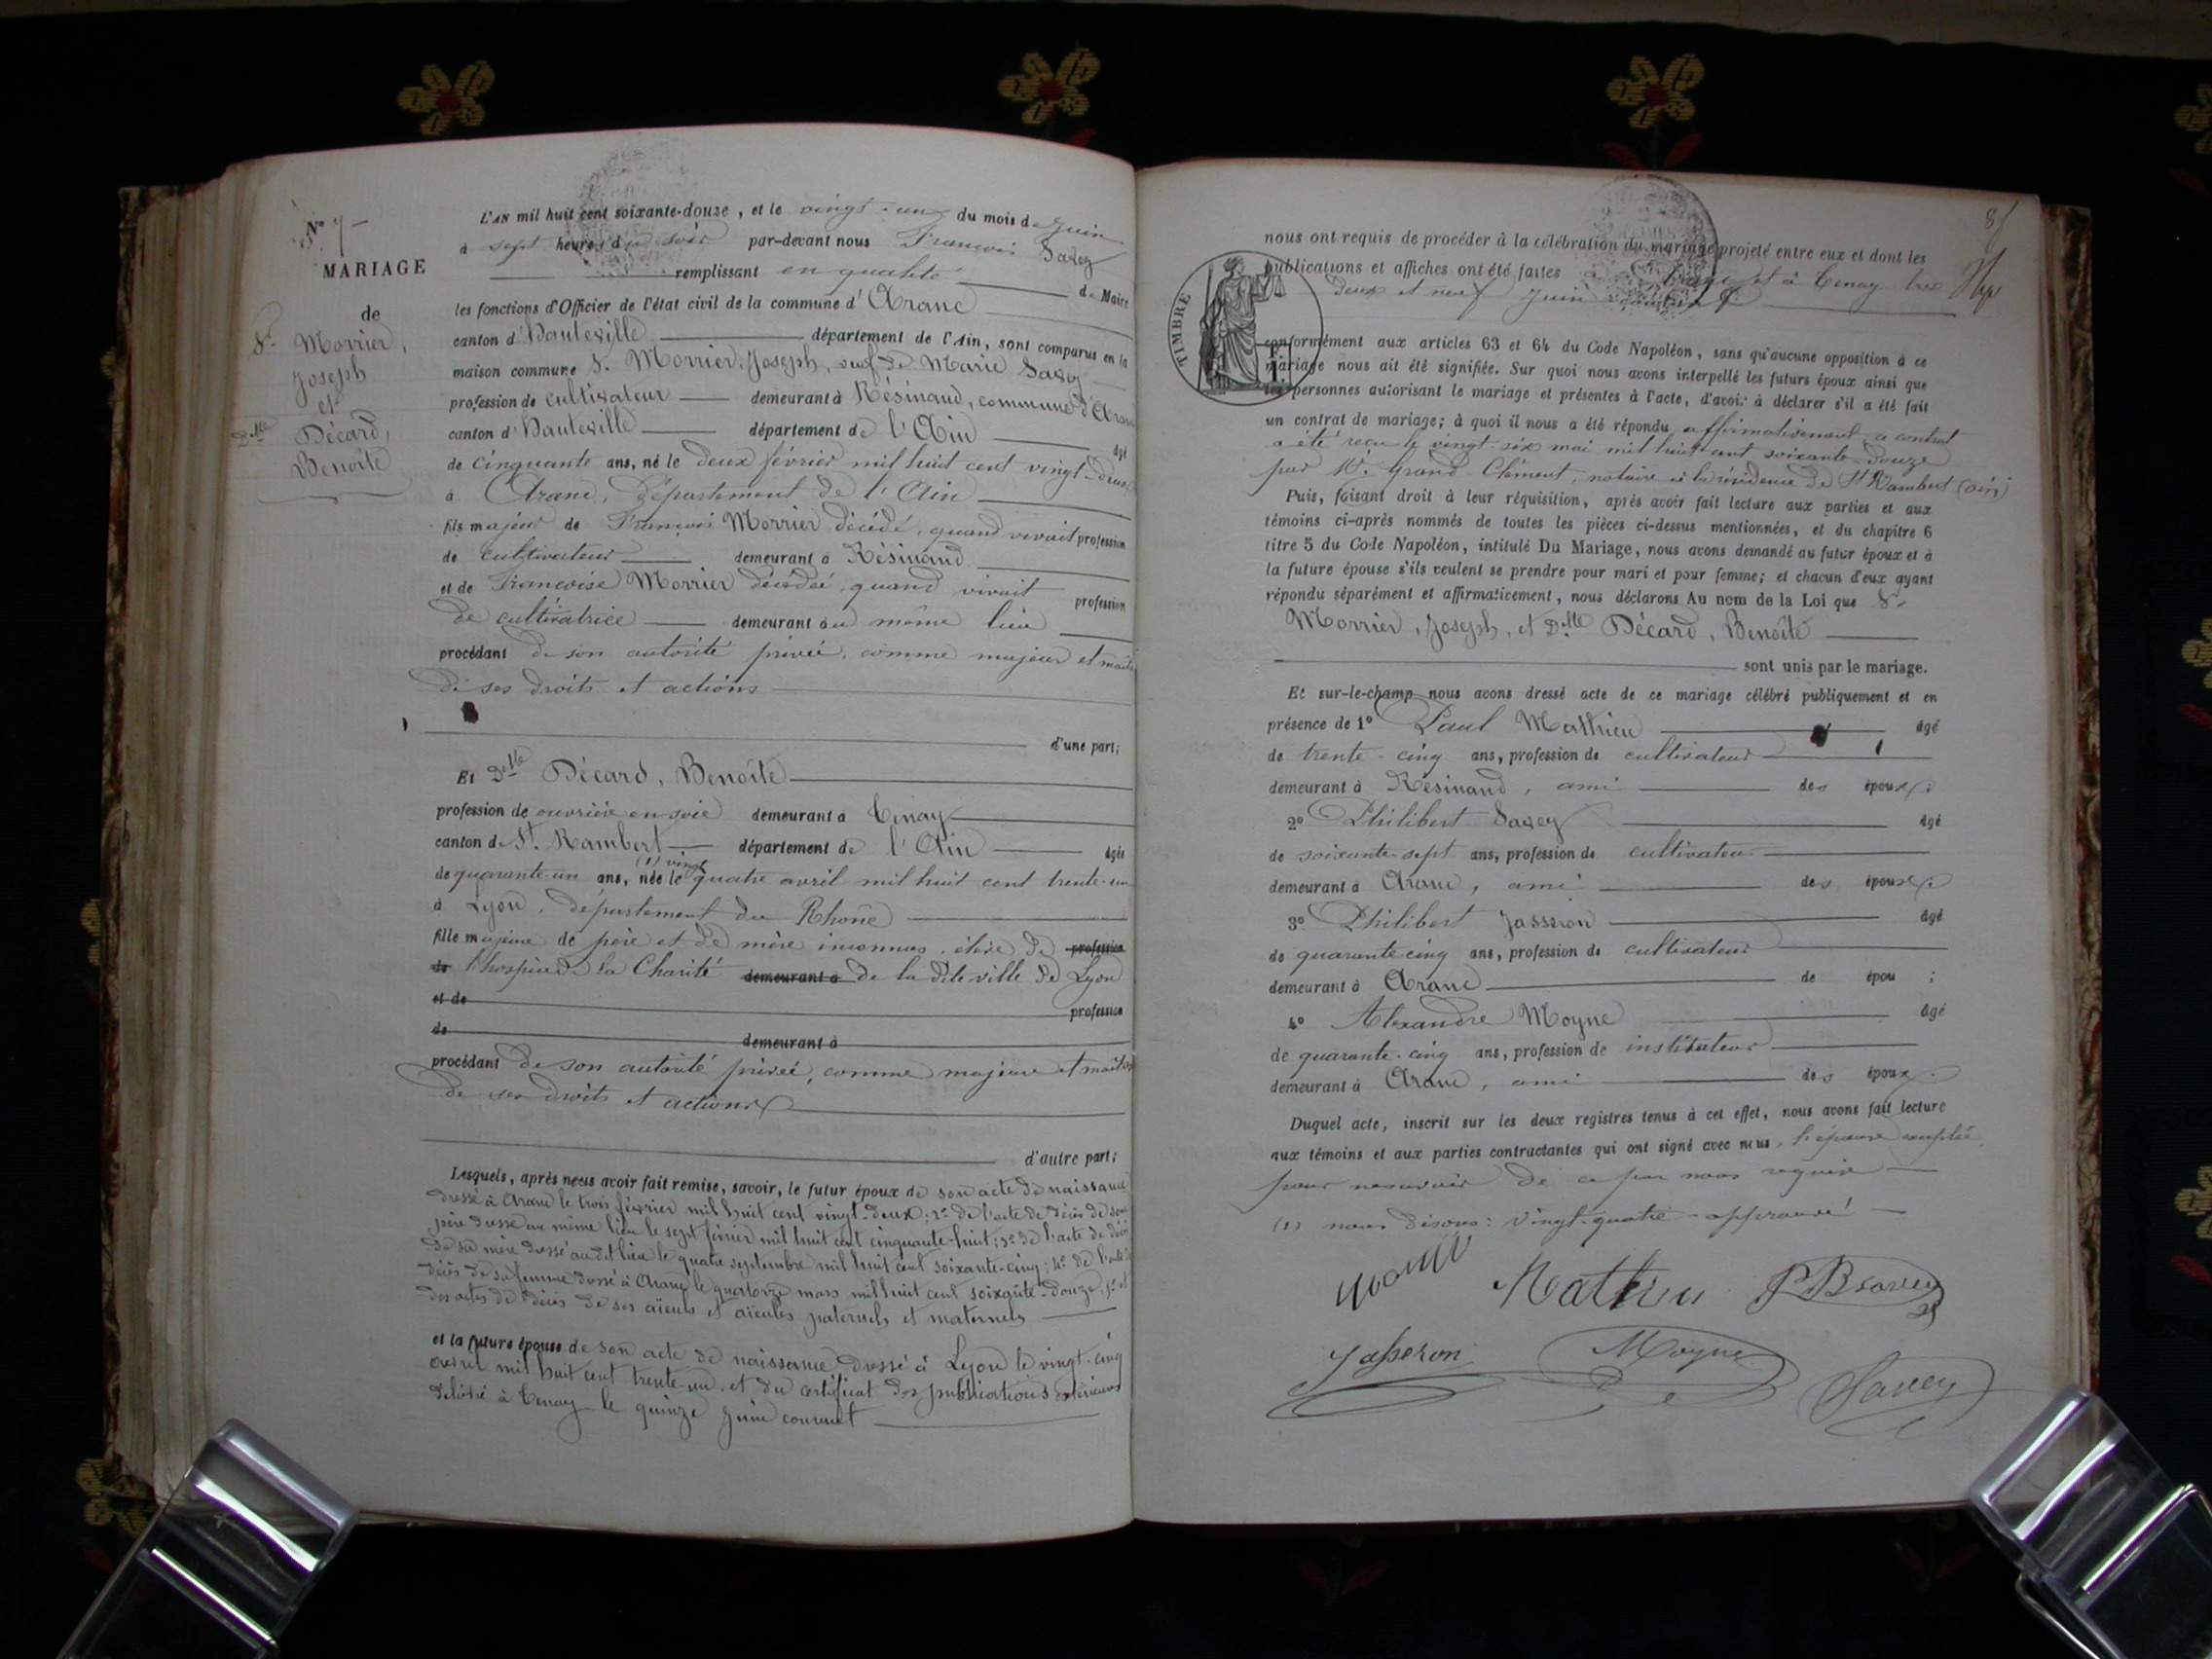 N° 7
MARIAGE
de
Sr Morrier,
Joseph
et
Delle Décard,
Benoîte
L'AN mil huit cent soixante-douze, et le vingt-un du mois de Juin
à sept heures du soir par-devant nous François Savey
remplissant en qualité de Maire
les fonctions d'Officier de l'état civil de la commune d'Aranc
canton d'Hauteville département de l'Ain, sont comparus en la
maison commune Sr Morrier, Joseph, veuf de Marie Savey
profession de cultivateur demeurant à Résinand, commune d'Aranc
canton d'Hauteville département de l'Ain âgé
de cinquante ans, né le deux février mil huit cent vingt-deux
à Aranc, département de l'Ain
fils majeur de François Morrier décédé, quand vivait profession
de cultivateur demeurant à Résinand
et de Françoise Morrier décédée, quand vivait profession
de cultivatrice demeurant au même lieu
procédant de son autorité privée, comme majeur et maître
de ses droits et actions
d'une part;
Et Delle Décard, Benoîte
profession de ouvrière en soie demeurant à Tenay
canton de St Rambert département de l'Ain âgée
de quarante-un ans, née le (1) vingt quatre avril mil huit cent trente-un
à Lyon, département du Rhône
fille majeure de père et de mère inconnus, élève de profession
de l'hospice de la Charité demeurant à de la dite ville de Lyon
et de profession
de demeurant à
procédant de son autorité privée, comme majeure et maîtresse
de ses droits et actions
d'autre part;
Lesquels, après nous avoir fait remise, savoir, le futur époux de son acte de naissance
dressé à Aranc le trois février mil huit cent vingt-deux; 2° de l'acte de décès de son
père dressé au même lieu le sept février mil huit cent cinquante-huit; 3° de l'acte de décès
de sa mère dressé au dit lieu le quatre septembre mil huit cent soixante-cinq; 4° de l'acte de
décès de sa femme dressé à Aranc le quatorze mars mil huit cent soixante-douze, 5° et
des actes de décès de ses aïeuls et aïeules paternels et maternels
et la future épouse de son acte de naissance dressé à Lyon le vingt-cinq
avril mil huit cent trente-un, et du certificat des publications extérieures
délivré à Tenay le quinze juin courant
nous ont requis de procéder à la célébration du mariage projeté entre eux et dont les
publications et affiches ont été faites à Aranc et à Tenay les
deux et neuf juin
TIMBRE
conformément aux articles 63 et 64 du Code Napoléon, sans qu'aucune opposition à ce
mariage nous ait été signifiée. Sur quoi nous avons interpellé les futurs époux ainsi que
les personnes autorisant le mariage et présentes à l'acte, d'avoir à déclarer s'il a été fait
un contrat de mariage; à quoi il nous a été répondu affirmativement, ce contrat
a été reçu le vingt-six mai mil huit cent soixante-douze
par Me Grand Clément, notaire à la résidence de St Rambert (Ain)
Puis, faisant droit à leur réquisition, après avoir fait lecture aux parties et aux
témoins ci-après nommés de toutes les pièces ci-dessus mentionnées, et du chapitre 6
titre 5 du Code Napoléon, intitulé Du Mariage, nous avons demandé au futur époux et à
la future épouse s'ils veulent se prendre pour mari et pour femme; et chacun d'eux ayant
répondu séparément et affirmativement, nous déclarons Au nom de la Loi que Sr
Morrier, Joseph, et Delle Décard, Benoîte
sont unis par le mariage.
Et sur-le-champ nous avons dressé acte de ce mariage célébré publiquement et en
présence de 1° Paul Mathieu âgé
de trente-cinq ans, profession de cultivateur
demeurant à Résinand, ami des époux;
2° Philibert Savey âgé
de soixante-sept ans, profession de cultivateur
demeurant à Aranc, ami des époux;
3° Philibert Jasseron âgé
de quarante cinq ans, profession de cultivateur
demeurant à Aranc de épou ;
4° Alexandre Moyne âgé
de quarante-cinq ans, profession de instituteur
demeurant à Aranc, ami des époux.
Duquel acte, inscrit sur les deux registres tenus à cet effet, nous avons fait lecture
aux témoins et aux parties contractantes qui ont signé avec nous, l'épouse exceptée
pour ne savoir de ce par nous requise
(1) nous disons: vingt-quatre approuvé
Mathieu
Jasseron Moyne Savey